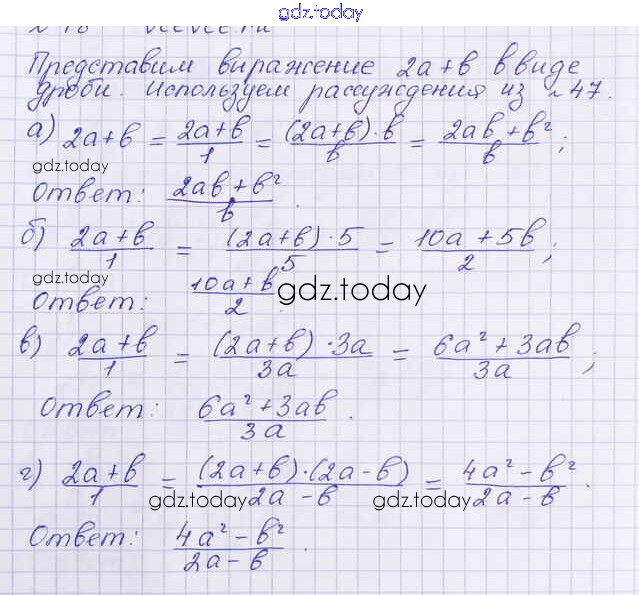 gdz.today
Представим выражение 2a+b в виде
дроби. Используем рассуждения из №47.
а) 2a+b = (2a+b)/1 = ((2a+b)·b)/b = (2ab+b²)/b;
gdz.today
Ответ: (2ab+b²)/b.
б) (2a+b)/1 = ((2a+b)·5)/5 = (10a+5b)/2;
gdz.today
Ответ: (10a+b)/2.
gdz.today
в) (2a+b)/1 = ((2a+b)·3a)/3a = (6a²+3ab)/3a;
Ответ: (6a²+3ab)/3a.
г) (2a+b)/1 = ((2a+b)·(2a-b))/(2a-b) = (4a²-b²)/(2a-b).
gdz.today gdz.today
Ответ: (4a²-b²)/(2a-b).